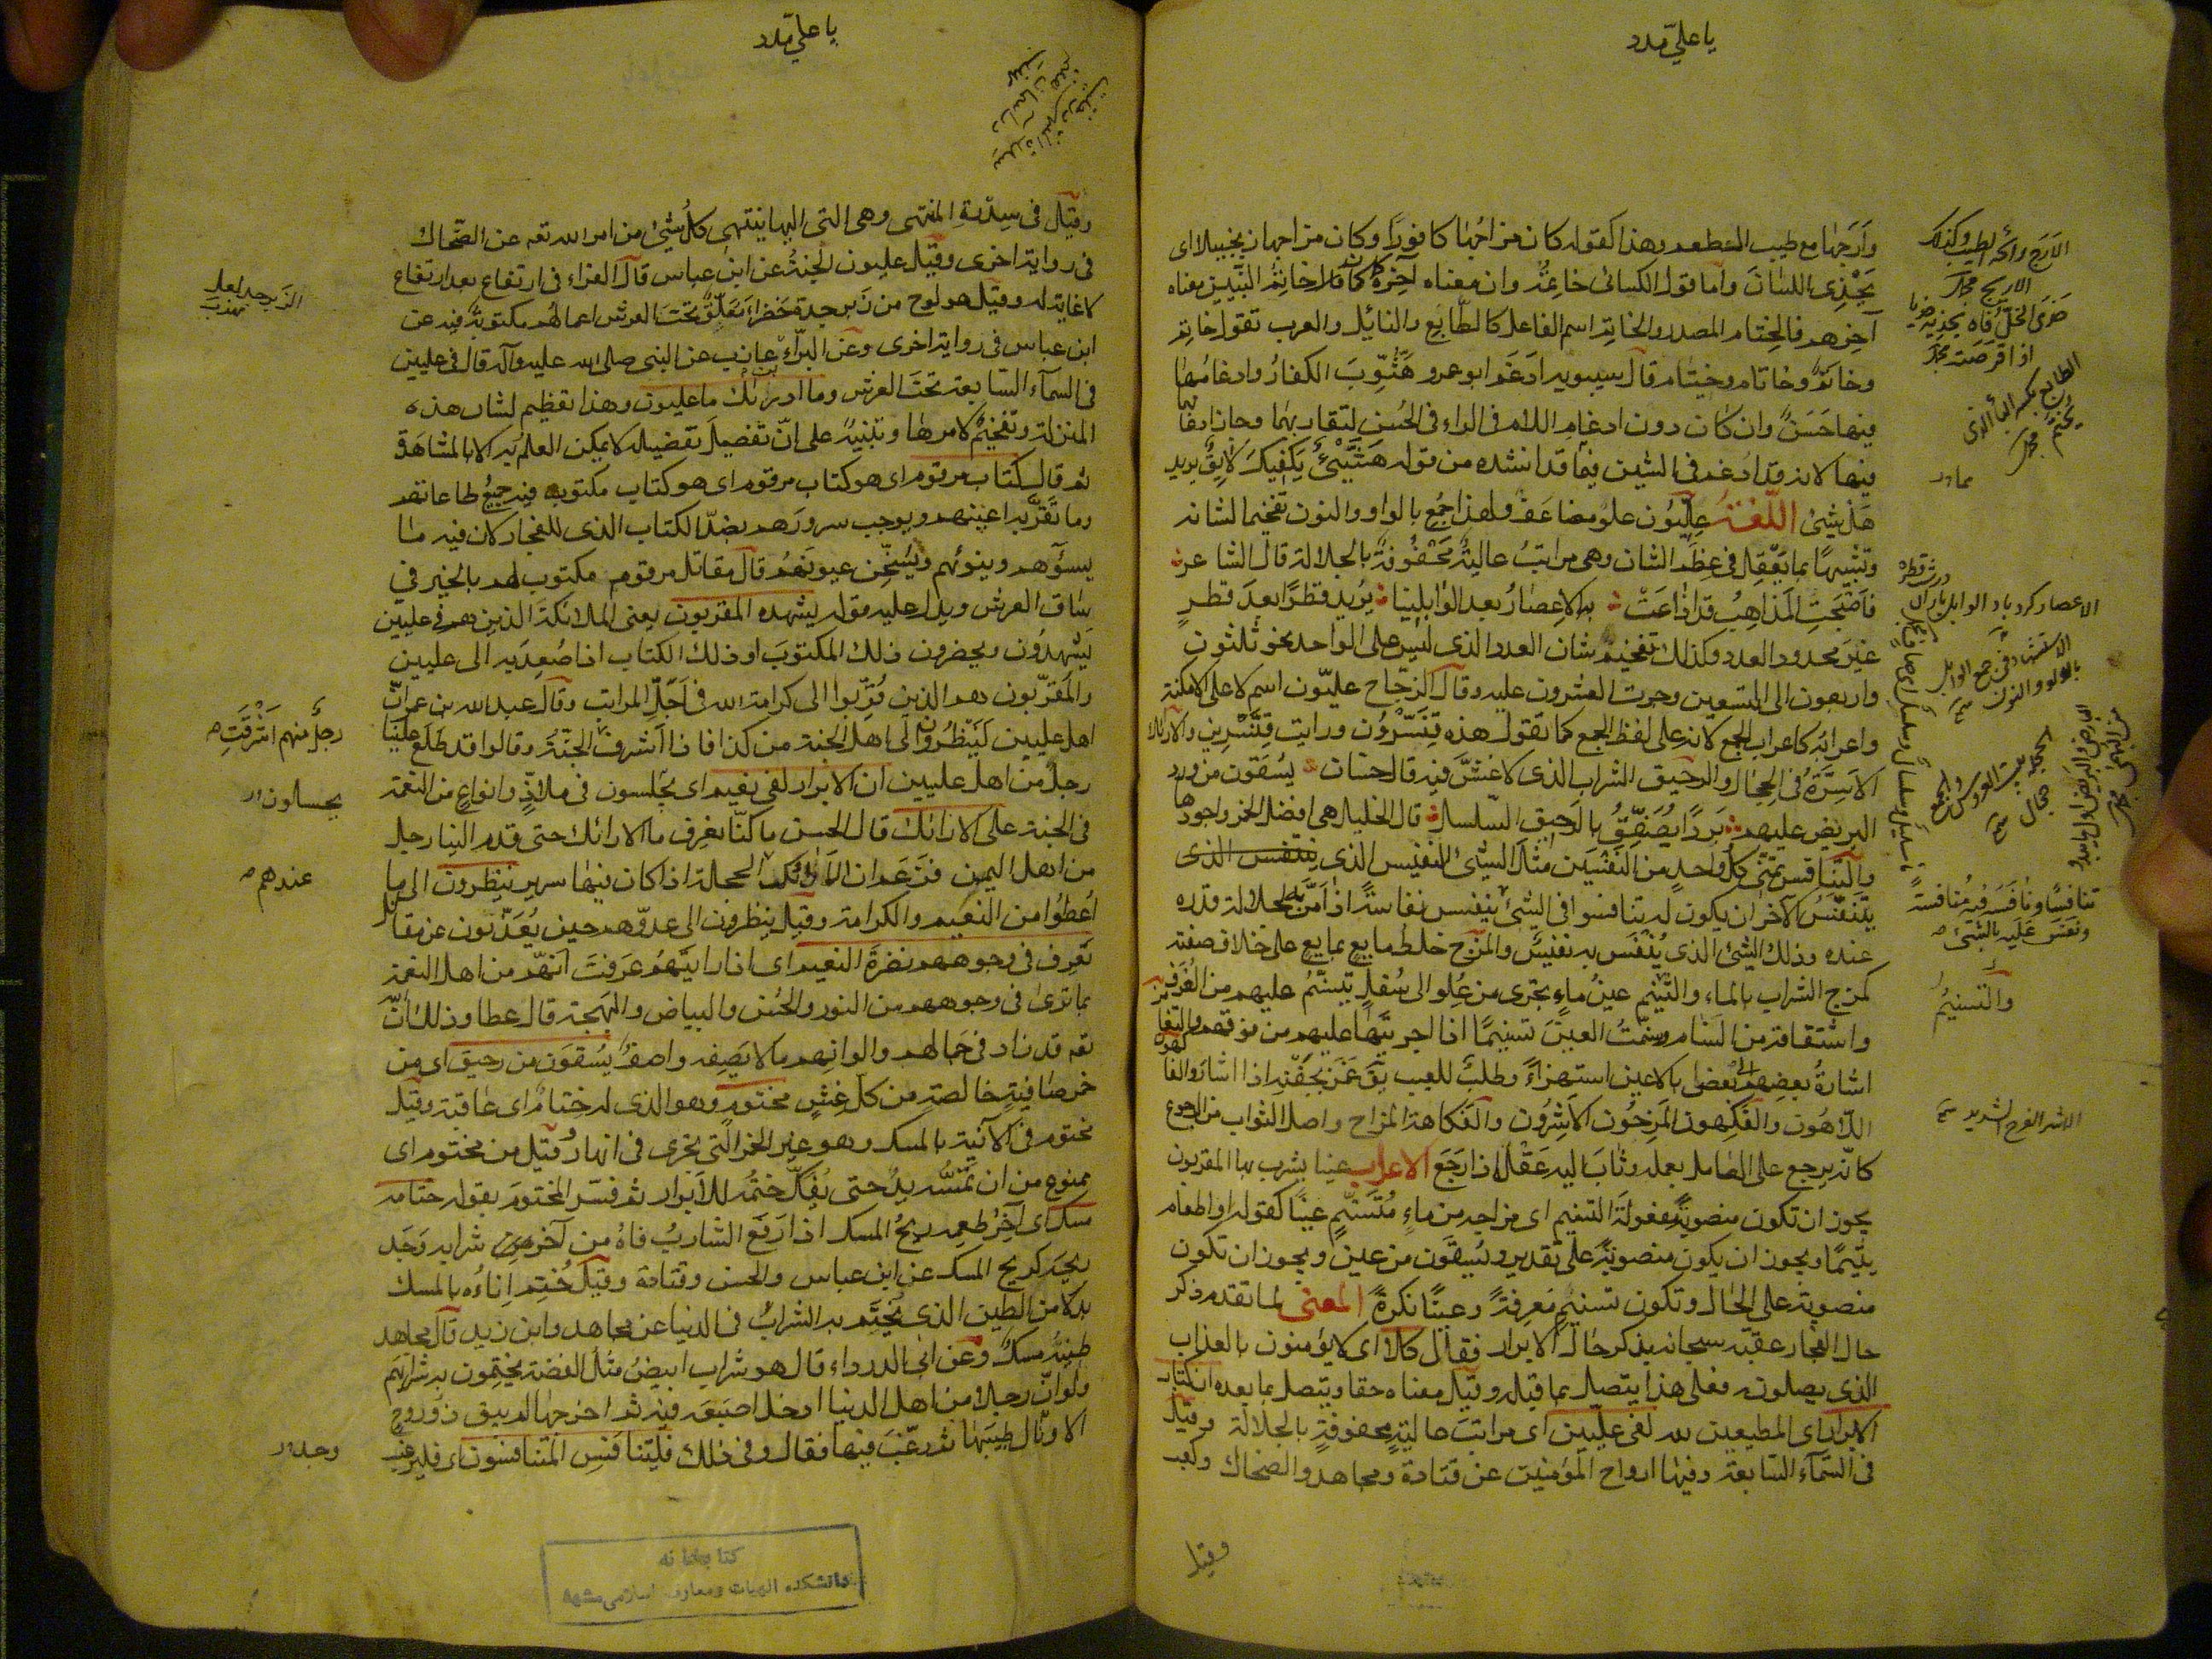 يا علىّ مدد
وأرجها مع طيب الطعم وهذا كقوله كان مزاجها كافورا وكان مزاجها زنجبيلا اى
يحذى اللسان واما قول الكسائى خاتمه وان معناه آخره كما كان خاتم النبيين معناه
آخرهم فالختام المصدر والخاتم اسم الفاعل كالطابع والتابل والعرب تقول خاتم
وخاتَم وخاتام وخيتام قال سيبويه ادغم ابو عمرو هثّوّب الكفار وادغامها
فيها حسن وان كان دون ادغام اللام فى الراء فى الحسن لتقاربهما وجاز ادغامها
فيها لانه قد ادغم فى الشين فيما قد انشده من قوله هشّىء بكفيك لايق يريد
هل شىء اللغة عليون علو مضاعف ولهذا جمع بالواو والنون تفخيما لشانه
وتشبيها بما يعقل فى عظم الشان وهى مراتب عالية محفوفة بالجلالة قال الشاعر
فاصبحت المذاهب قد اذاعت به الاعصار بعد الوابلينا يريد قطرا بعد قطر
غير محدود العدد وكذلك تفخيم شان العدد الذى ليس على الواحد نحو ثلثون
واربعون الى التسعين وجرت العشرون عليه وقال الزجاج عليون اسم لاعلى الامكنة
واعرابه كاعراب الجمع لانه على لفظ الجمع كما تقول هذه قنسرون ورايت قنسرين والارائك
الاسرّة فى الحجال والرحيق الشراب الذى لا غش فيه قال حسان يسقون من ورد
البريض عليهم بردا يصفق بالرحيق السلسل قال الخليل هى افضل الخمر واجودها
والتنافس تمنى كل واحد من النفسين مثل الشىء النفيس الذى
يتنفس الآخر ان يكون له تنافسوا فى الشىء ينفس نفاسة اذا ضنّ به لجلالة قدره
عنده وذلك الشىء الذى ينفس به نفيس والمزج خلط مايع بمايع على خلاف صفته
كمزج الشراب بالماء والتسنيم عين ماء يجرى من علو الى سفل يتسنم عليهم من الغرف
واشتقاقه من السنام وسنمت العين تسنيما اذا اجريتها عليهم من فوقهم والتغامز
اشارة بعضهم الى بعض بالاعين استهزاء وطلبا للعيب يق غمز بجفنه اذا اشار والفا
اللاهون والفكهون المرحون الاشرون والفكاهة المزاح واصل الثواب من الرجوع
كانه يرجع على العامل بعمله وثاب اليه عقله اذا رجع الاعراب عينا يشرب بها المقربون
يجوز ان تكون منصوبة مفعولة التسنيم اى مزاجه من ماء متسنم عينا كقوله او اطعام
يتيما ويجوز ان يكون منصوبة على تقدير ويسقون من عين ويجوز ان تكون
منصوبة على الحال وتكون تسنيم معرفة وعينا نكرة المعنى لما تقدم ذكر
حال الفجار عقبه سبحانه بذكر حال الابرار فقال كلا اى لا يؤمنون بالعذاب
الذى يصلونه فعلى هذا يتصل بما قبله وقيل معناه حقا ويتصل بما بعده ان كتاب
الابرار اى المطيعين لله لفى عليين اى مراتب عالية محفوفة بالجلالة وقيل
فى السماء السابعة وفيها ارواح المؤمنين عن قتادة ومجاهد والضحاك وكعب
وقيل
الارج رائحة الطيب وكذلك
الاريج
اذا قرصته
الطابع بكسر الباء الذى
يختم
والتسنيم
الاشر الفرح الشديد
يا علىّ مدد
وقيل فى سدرة المنتهى وهى التى اليها ينتهى كل شىء من امر الله تعه عن الضحاك
فى رواية اخرى وقيل عليون الجنة عن ابن عباس قال الفراء فى ارتفاع بعد ارتفاع
لا غاية له وقيل هو لوح من زبرجدة خضراء معلق تحت العرش اعمالهم مكتوبة فيه عن
ابن عباس فى رواية اخرى وعن البراء بن عازب عن النبى صلى الله عليه وآله قال فى عليين
فى السماء السابعة تحت العرش وما ادرئك ما عليون وهذا تعظيم لشان هذه
المنزلة وتفخيم لامرها وتنبيه على ان تفصيل تفضيله لا يمكن العلم به الا بالمشاهدة
ثم قال كتاب مرقوم اى هو كتاب مرقوم اى هو كتاب مكتوب فيه جميع طاعاتهم
وما تقر به اعينهم ويوجب سرورهم بضد الكتاب الذى للفجار لان فيه ما
يسوءهم وينوءهم ويسخن عيونهم قال مقاتل مرقوم مكتوب لهم بالخير فى
ساق العرش ويدل عليه قوله يشهده المقربون يعنى الملائكة الذين هم فى عليين
يشهدون ويحضرون ذلك المكتوب او ذلك الكتاب اذا صعد به الى عليين
والمقربون هم الذين قربوا الى كرامة الله فى اجل المراتب وقال عبد الله بن عمر ان
اهل عليين لينظرون الى اهل الجنة من كذا فاذا اشرف الجنة وقالوا قد طلع علينا
رجل من اهل عليين ان الابرار لفى نعيم اى يجلسون فى ملاذ وانواع من النعمة
فى الجنة على الارائك قال الحسن ما كنا نعرف ما الارائك حتى قدم الينا رجل
من اهل اليمن فزعم ان الارائك الحجلة اذا كان فيها سرير ينظرون الى ما
اعطوا من النعيم والكرامة وقيل ينظرون الى عدوهم حين يعذبون عن مقاتل
تعرف فى وجوههم نضرة النعيم اى اذا رايتهم عرفت انهم من اهل النعمة
بما ترى فى وجوههم من النور والحسن والبياض والبهجة قال عطا وذلك ان
تعه قد زاد فى جمالهم والوانهم ما لا يصفه واصف يسقون من رحيق اى من
خمر صافية خالصة من كل غش مختوم وهو الذى له ختام اى عاقبة وقيل
مختوم فى الآنية بالمسك وهو غير الخمر التى تجرى فى انهار وقيل من مختوم اى
ممنوع من ان تمسه يد حتى يفك ختمه للابرار ثم فسر المختوم بقوله ختامه
مسك اى آخر طعمه ريح المسك اذا رفع الشارب فاه من آخر شرابه وجد
ريحه كريح المسك عن ابن عباس والحسن وقتادة وقيل ختم اناؤه بالمسك
بدلا من الطين الذى يختم به الشراب فى الدنيا عن مجاهد وابن زيد قال مجاهد
طينه مسك وعن ابى الدرداء قال هو شراب ابيض مثل الفضة يختمون به شرابهم
ولو ان رجلا من اهل الدنيا ادخل اصبعه فيه ثم اخرجها لم يبق ذو روح
الا ونال طيبها ثم رغب فيها فقال وفى ذلك فليتنافس المتنافسون اى فليرغب
رجل منهم اشرقت
عندهم
وجد
كتابخانه
دانشكده الهيات ومعارف اسلامى مشهد